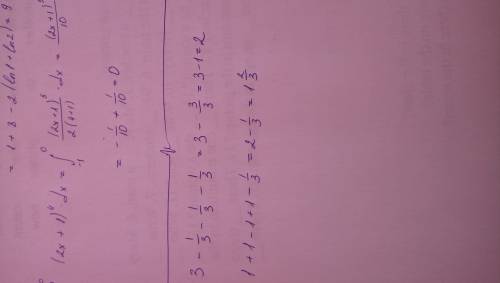 = 1 + 3 - 2 (ln1 + ln2) = 
(2x + 1)⁴ dx = ∫₋₁⁰ (2x+1)⁵/2(4+1) · dx = (2x+1)/10
= - 1/10 + 1/10 = 0
3 - 1/3 - 1/3 - 1/3 = 3 - 3/3 = 3 - 1 = 2
1 + 1 - 1 + 1 - 1/3 = 2 - 1/3 = 1 2/3